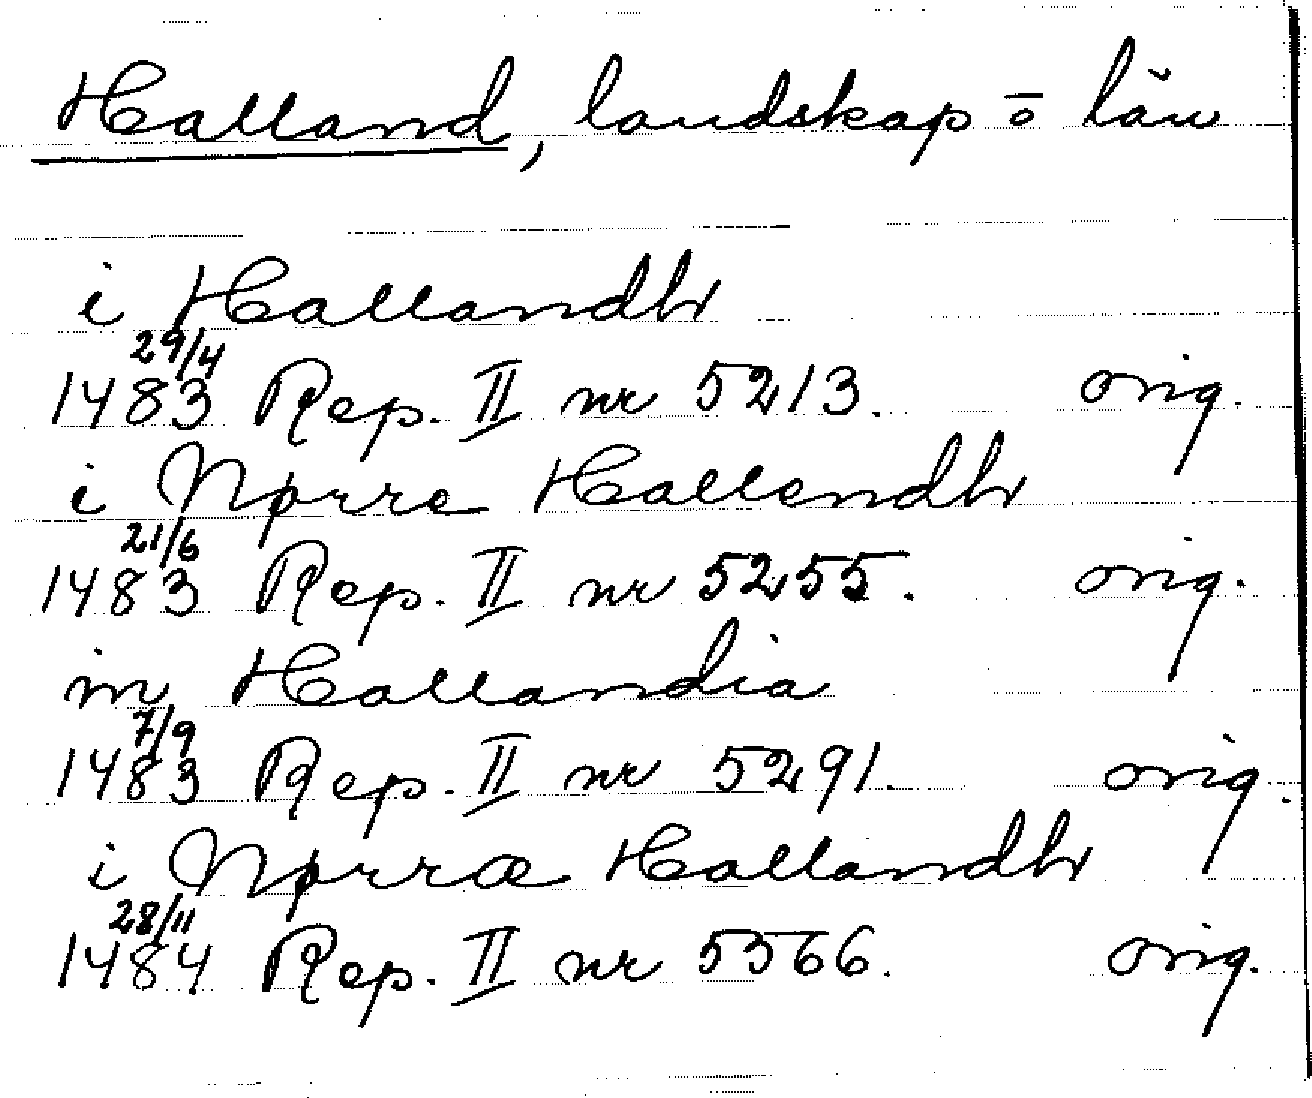 Halland, landskap ō län
i Hallandh
29/4
1483 Rep. II nr 5213. orig.
i Nørre Hallendh
21/6
1483 Rep. II nr 5255. orig.
in Hallandia
7/9
1483 Rep. II nr 5291. orig.
i Nørræ Hallandh
28/11
1484 Rep. II nr 5566. orig.